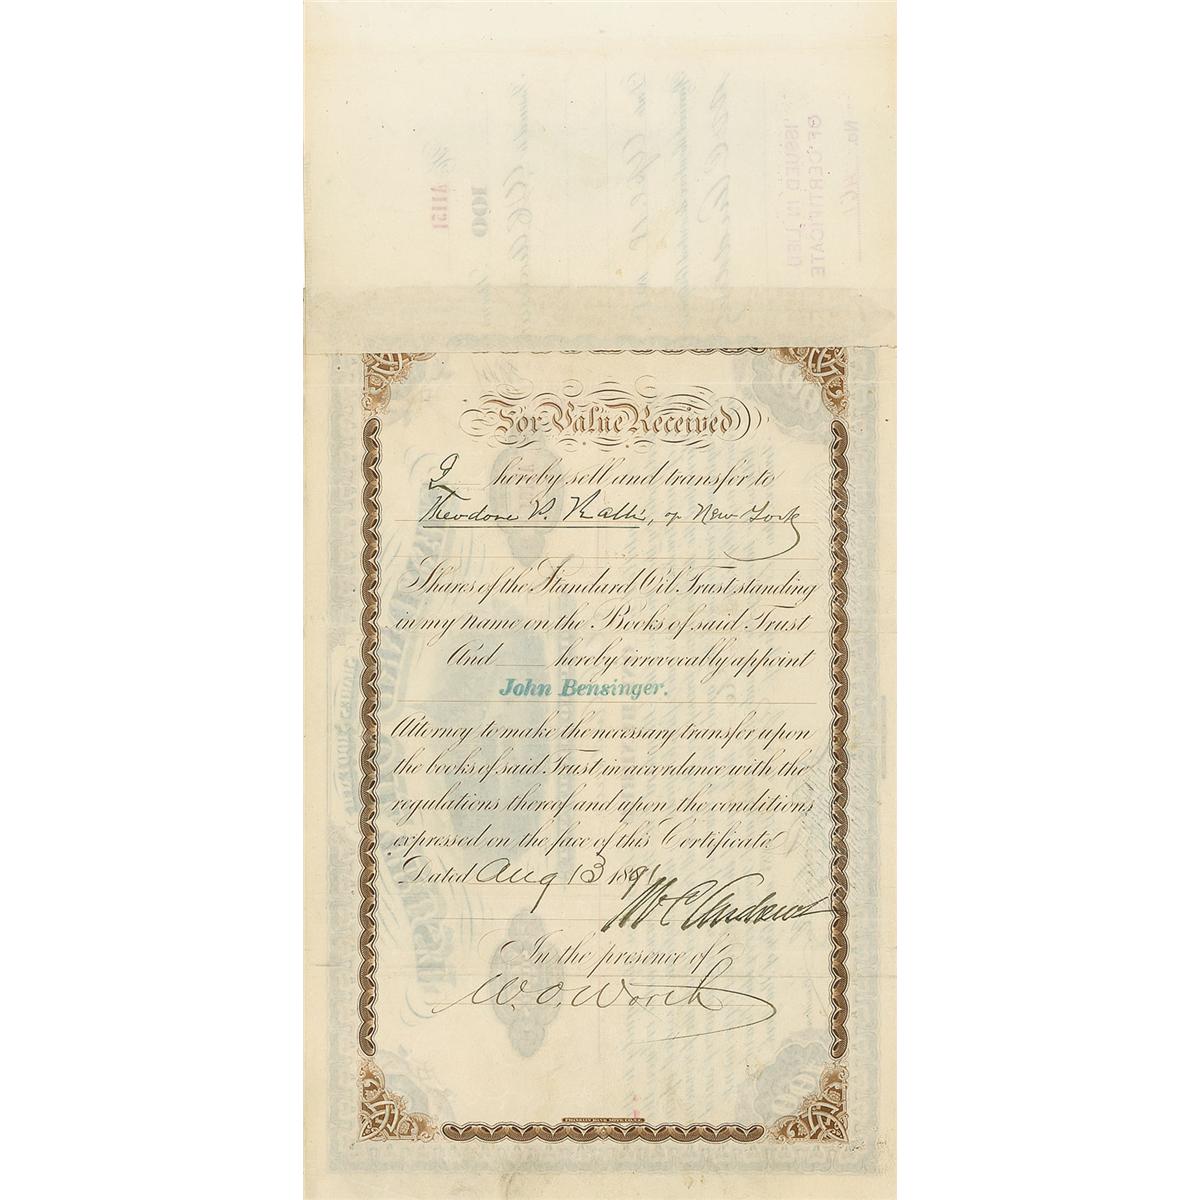 For Value Received
I hereby sell and transfer to
Theodore P. Ralli, of New York
Shares of the Standard Oil Trust standing
in my name on the Books of said Trust
And hereby irrevocably appoint
John Bensinger.
Attorney to make the necessary transfer upon
the books of said Trust, in accordance with the
regulations thereof and upon the conditions
expressed on the face of this Certificate
Dated Aug 13 1891
W C Andrews
In the presence of
W. O. Worth
FRANKLIN BANK NOTE CO. N.Y.